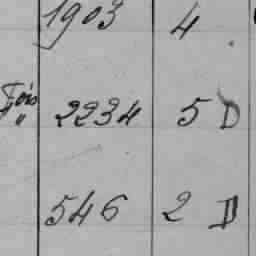 1903 4
2234 5 D
" 
546 2 D